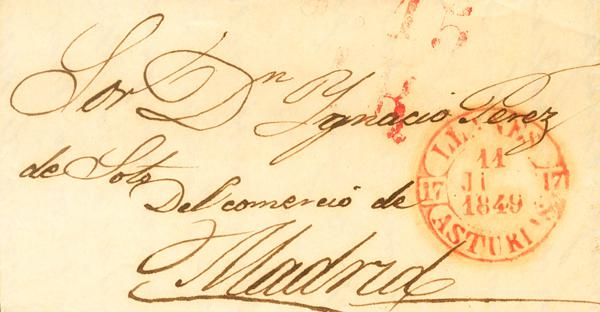 15
Sor Dn Ygnacio Perez
de Soto
Del comercio de
Madrid
LLANES
11
17 17
1849
ASTURIAS